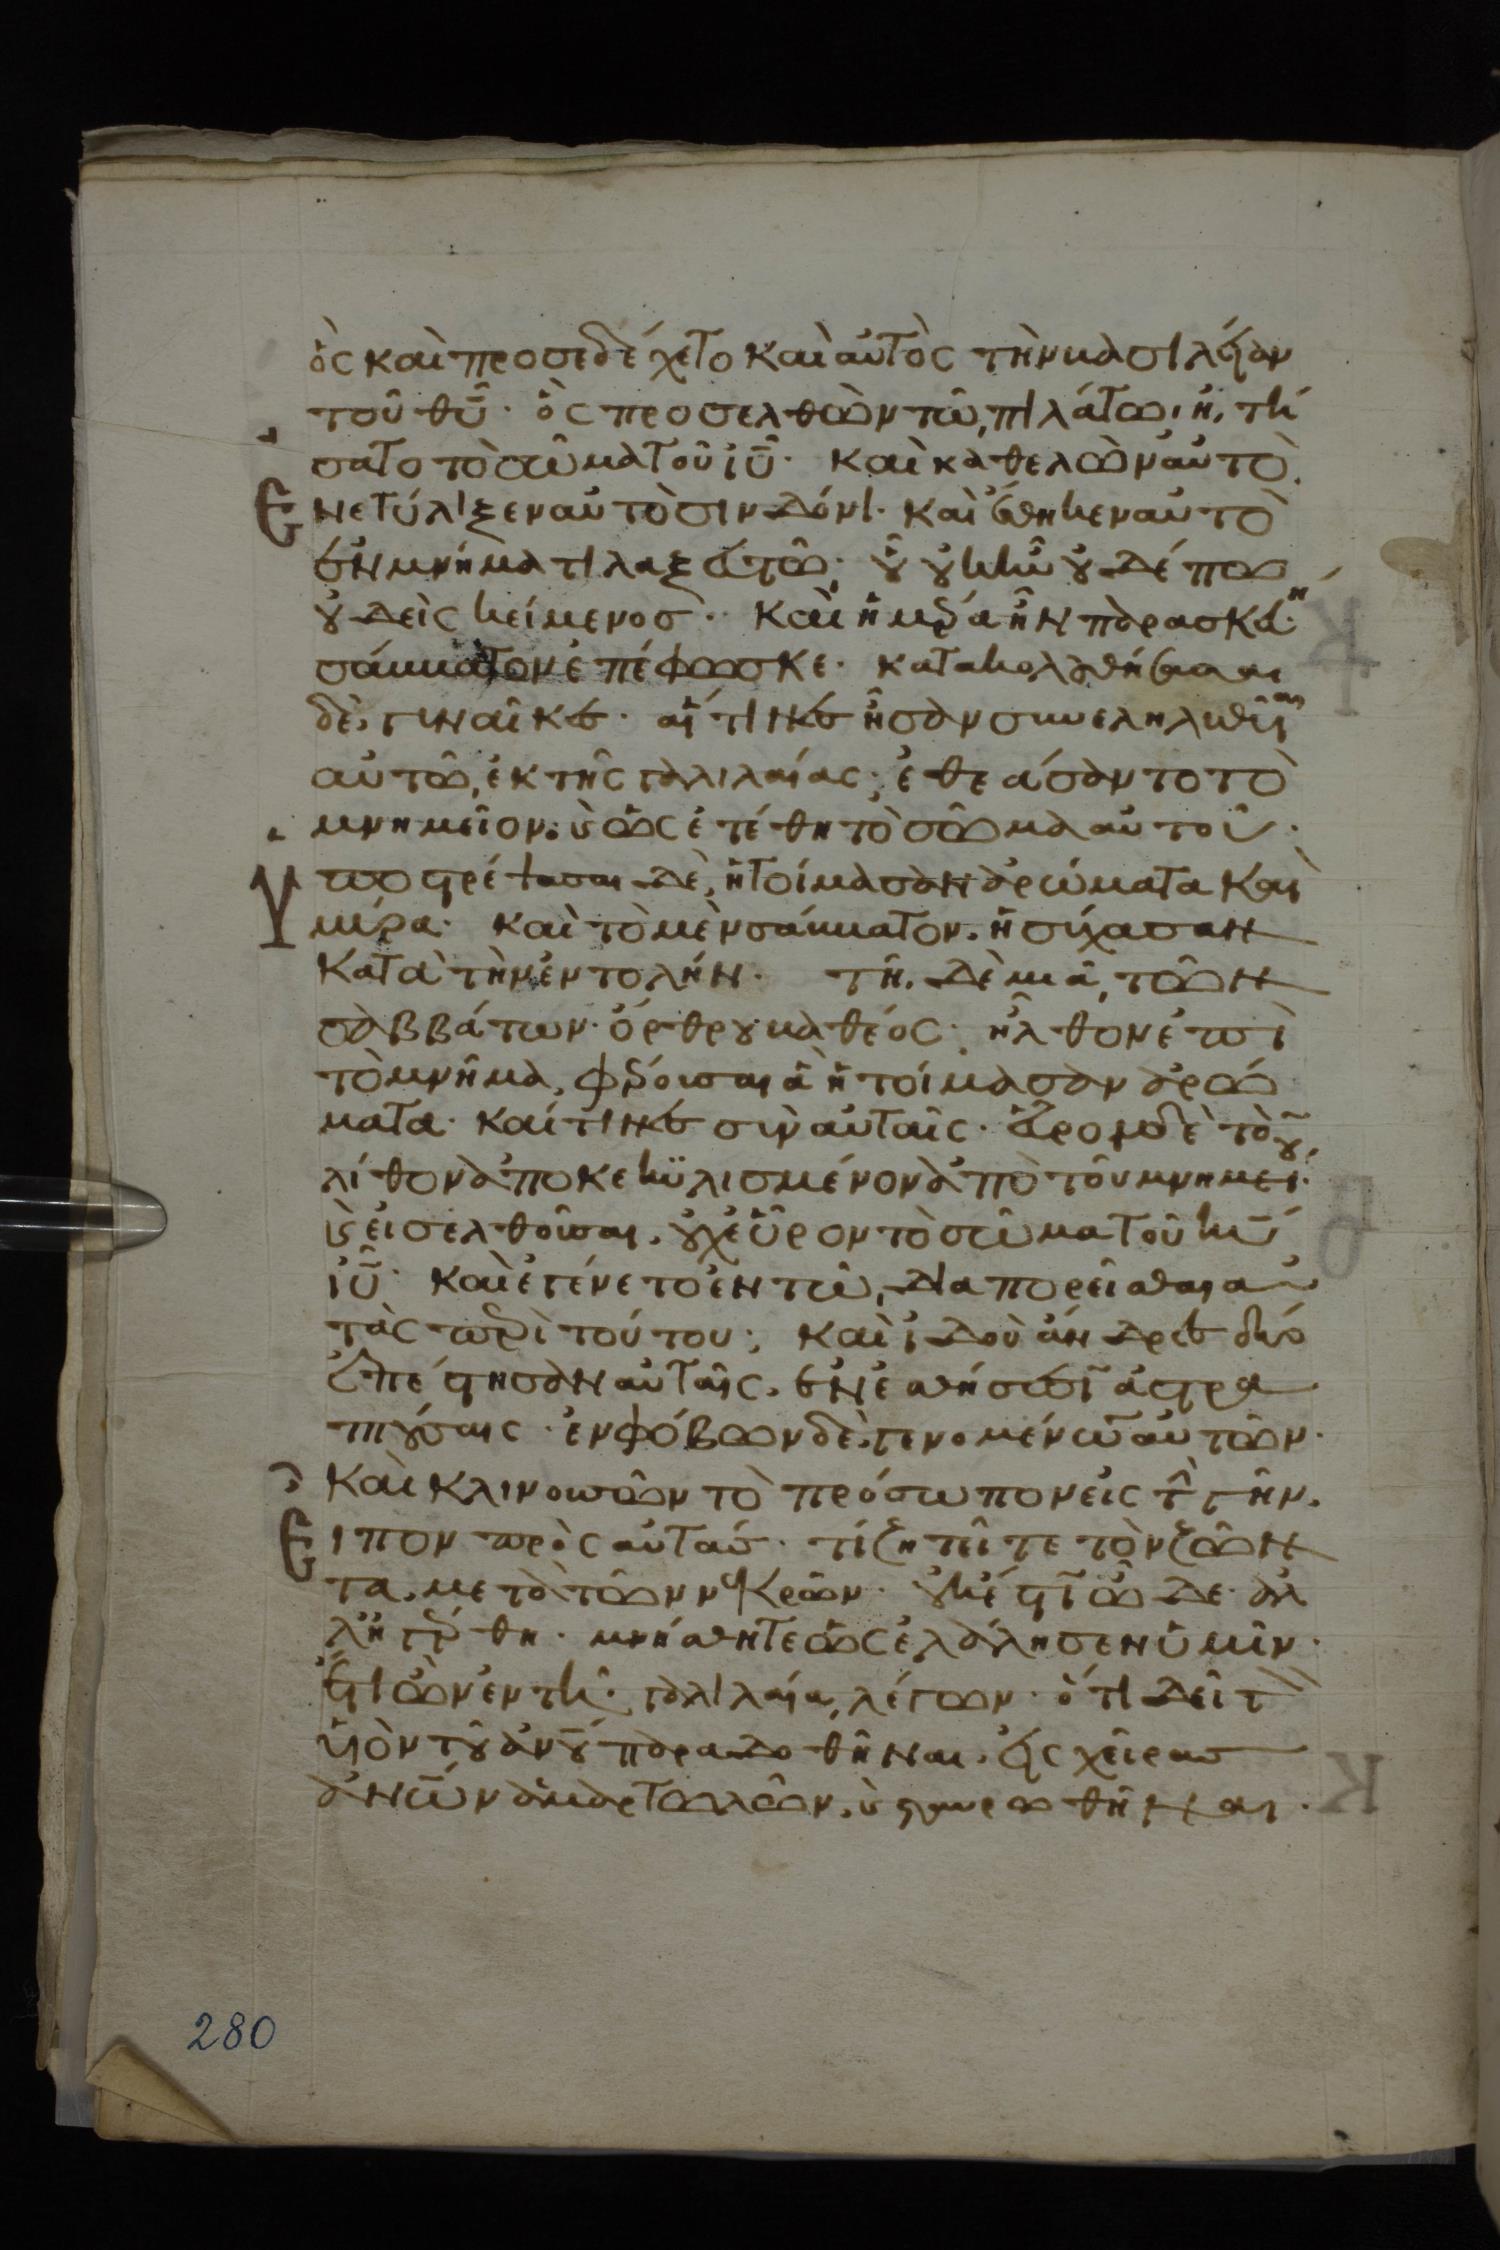 ὃς καὶ προσεδέχετο καὶ αὐτὸς τὴν βασιλείαν
τοῦ θῦ· ὃς προσελθὼν τῶ πιλάτω, ἠτή
σατο τὸ σῶμα τοῦ ἰῦ· καὶ καθελὼν αὐτὸ
Ενετύλιξεν αὐτὸ σινδόνι· καὶ ἔθηκεν αὐτὸ
ἐν μνήματι λαξευτῶ· οὗ οὐκ ἦν οὐδέπω
οὐδεὶς κείμενος· καὶ ἡμέρα ἦν παρασκευή·
σάββατον ἐπέφωσκε· κατακολουθήσασαι
δὲ γυναῖκες· αἵτινες ἦσαν συνεληλυθυῖαι
αὐτῶ ἐκ τῆς γαλιλαίας· ἐθεάσαντο τὸ
μνημεῖον· καὶ ὡς ἐτέθη τὸ σῶμα αὐτοῦ·
Υποστρέψασαι δὲ, ἡτοίμασαν ἀρώματα καὶ
μύρα· καὶ τὸ μὲν σάββατον, ἡσύχασαν
κατὰ τὴν ἐντολήν· τῆ δὲ μιᾶ τῶν
σαββάτων· ὄρθρου βαθέος· ἦλθον ἐπὶ
τὸ μνῆμα, φέρουσαι ἃ ἡτοίμασαν ἀρώ
ματα· καί τινες σὺν αὐταῖς· εὗρον δὲ τὸν
λίθον ἀποκεκϋλισμένον ἀπὸ τοῦ μνημείου·
καὶ εἰσελθοῦσαι, οὐχ εὗρον τὸ σῶμα τοῦ κῦ
ἰῦ· καὶ ἐγένετο ἐν τῶ διαπορεῖσθαι αὐ
τὰς περὶ τούτου· καὶ ἰδοὺ ἄνδρες δύο
ἐπέστησαν αὐταῖς, ἐν ἐσθήσεσιν ἀστρα
πτούσαις· ἐμφόβων δὲ γενομένων αὐτῶν·
καὶ κλινουσῶν τὸ πρόσωπον εἰς τὴν γῆν,
Ειπον πρὸς αὐτάς· τί ζητεῖτε τὸν ζῶν
τα, μετὰ τῶν νεκρῶν· οὐκ ἔστιν ὧδε· ἀλ
λ' ἠγέρθη· μνήσθητε ὡς ἐλάλησεν ὑμῖν·
ἔτι ὢν ἐν τῆ γαλιλαία, λέγων· ὅτι δεῖ τὸν
υἱὸν τοῦ ἀνοῦ παραδοθῆναι, εἰς χεῖρας
ἀνων ἁμαρτωλῶν, καὶ σταυρωθῆναι·
280